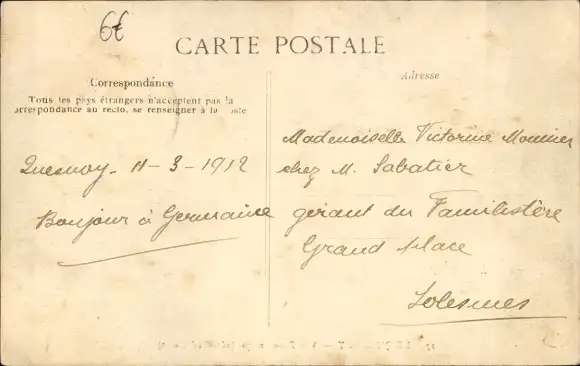 6€
CARTE POSTALE
Correspondance
Tous les pays étrangers n'acceptent pas la
correspondance au recto, se renseigner à la poste
Quesnoy. 11-3-1912
Bonjour à Germaine
Adresse
Mademoiselle Victorine
chez M. Sabatier
gérant du Familistère
Grand Place
Solesmes